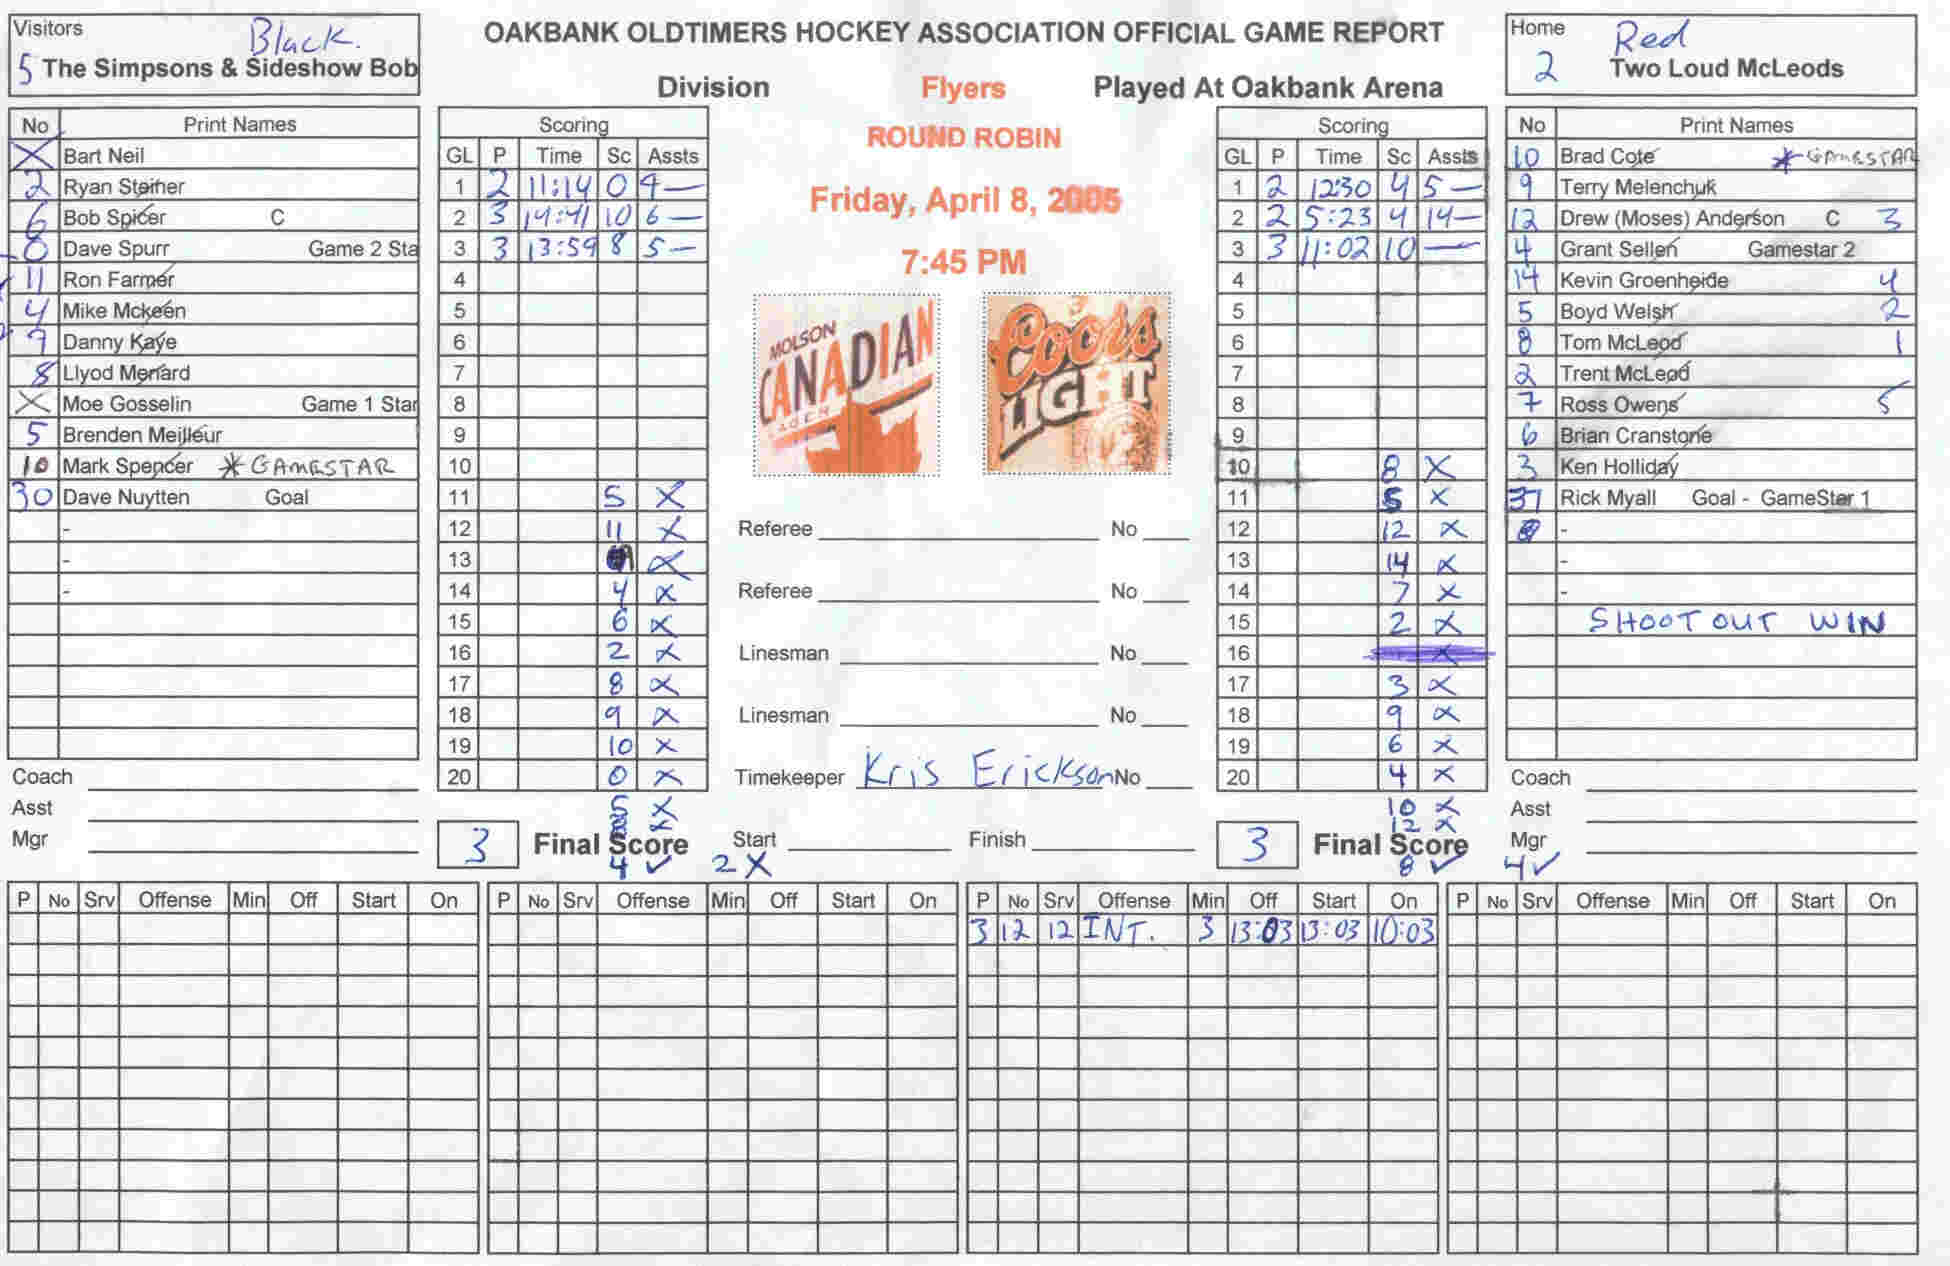 Visitors
Black.
5 The Simpsons & Sideshow Bob
OAKBANK OLDTIMERS HOCKEY ASSOCIATION OFFICIAL GAME REPORT
Division Flyers Played At Oakbank Arena
ROUND ROBIN
Friday, April 8, 2005
7:45 PM
Home
Red
2 Two Loud McLeods
No Print Names
X Bart Neil
2 Ryan Steiner
6 Bob Spicer C
0 Dave Spurr Game 2 Sta
11 Ron Farmer
4 Mike Mckeen
9 Danny Kaye
8 Llyod Menard
X Moe Gosselin Game 1 Star
5 Brenden Meilleur
10 Mark Spencer * GAMESTAR
30 Dave Nuytten Goal
-
-
-
Coach
Asst
Mgr
Scoring
GL P Time Sc Assts
1 2 11:14 0 4 —
2 3 14:41 10 6 —
3 3 13:59 8 5 —
4
5
6
7
8
9
10
11 5 X
12 11 X
13 X
14 4 X
15 6 X
16 2 X
17 8 X
18 9 X
19 10 X
20 0 X
5 X
X
3 Final Score
4 ✓ 2 X
MOLSON
CANADIAN
LAGER
Coors
LIGHT
Referee No
Referee No
Linesman No
Linesman No
Timekeeper Kris Erickson No
Start Finish
Scoring
GL P Time Sc Assts
1 2 12:30 4 5 —
2 2 5:23 4 14 —
3 3 11:02 10 —
4
5
6
7
8
9
10 8 X
11 5 X
12 12 X
13 14 X
14 7 X
15 2 X
16
17 3 X
18 9 X
19 6 X
20 4 X
10 X
12 X
3 Final Score
8 ✓ 4 ✓
No Print Names
10 Brad Cote * GAMESTAR
9 Terry Melenchuk
12 Drew (Moses) Anderson C 3
4 Grant Sellen Gamestar 2
14 Kevin Groenheide 4
5 Boyd Welsh 2
8 Tom McLeod 1
2 Trent McLeod
7 Ross Owens 5
6 Brian Cranstone
3 Ken Holliday
37 Rick Myall Goal - GameStar 1
-
-
-
SHOOT OUT WIN
Coach
Asst
Mgr
P No Srv Offense Min Off Start On
P No Srv Offense Min Off Start On
P No Srv Offense Min Off Start On
3 12 12 INT. 3 13:03 13:03 10:03
P No Srv Offense Min Off Start On